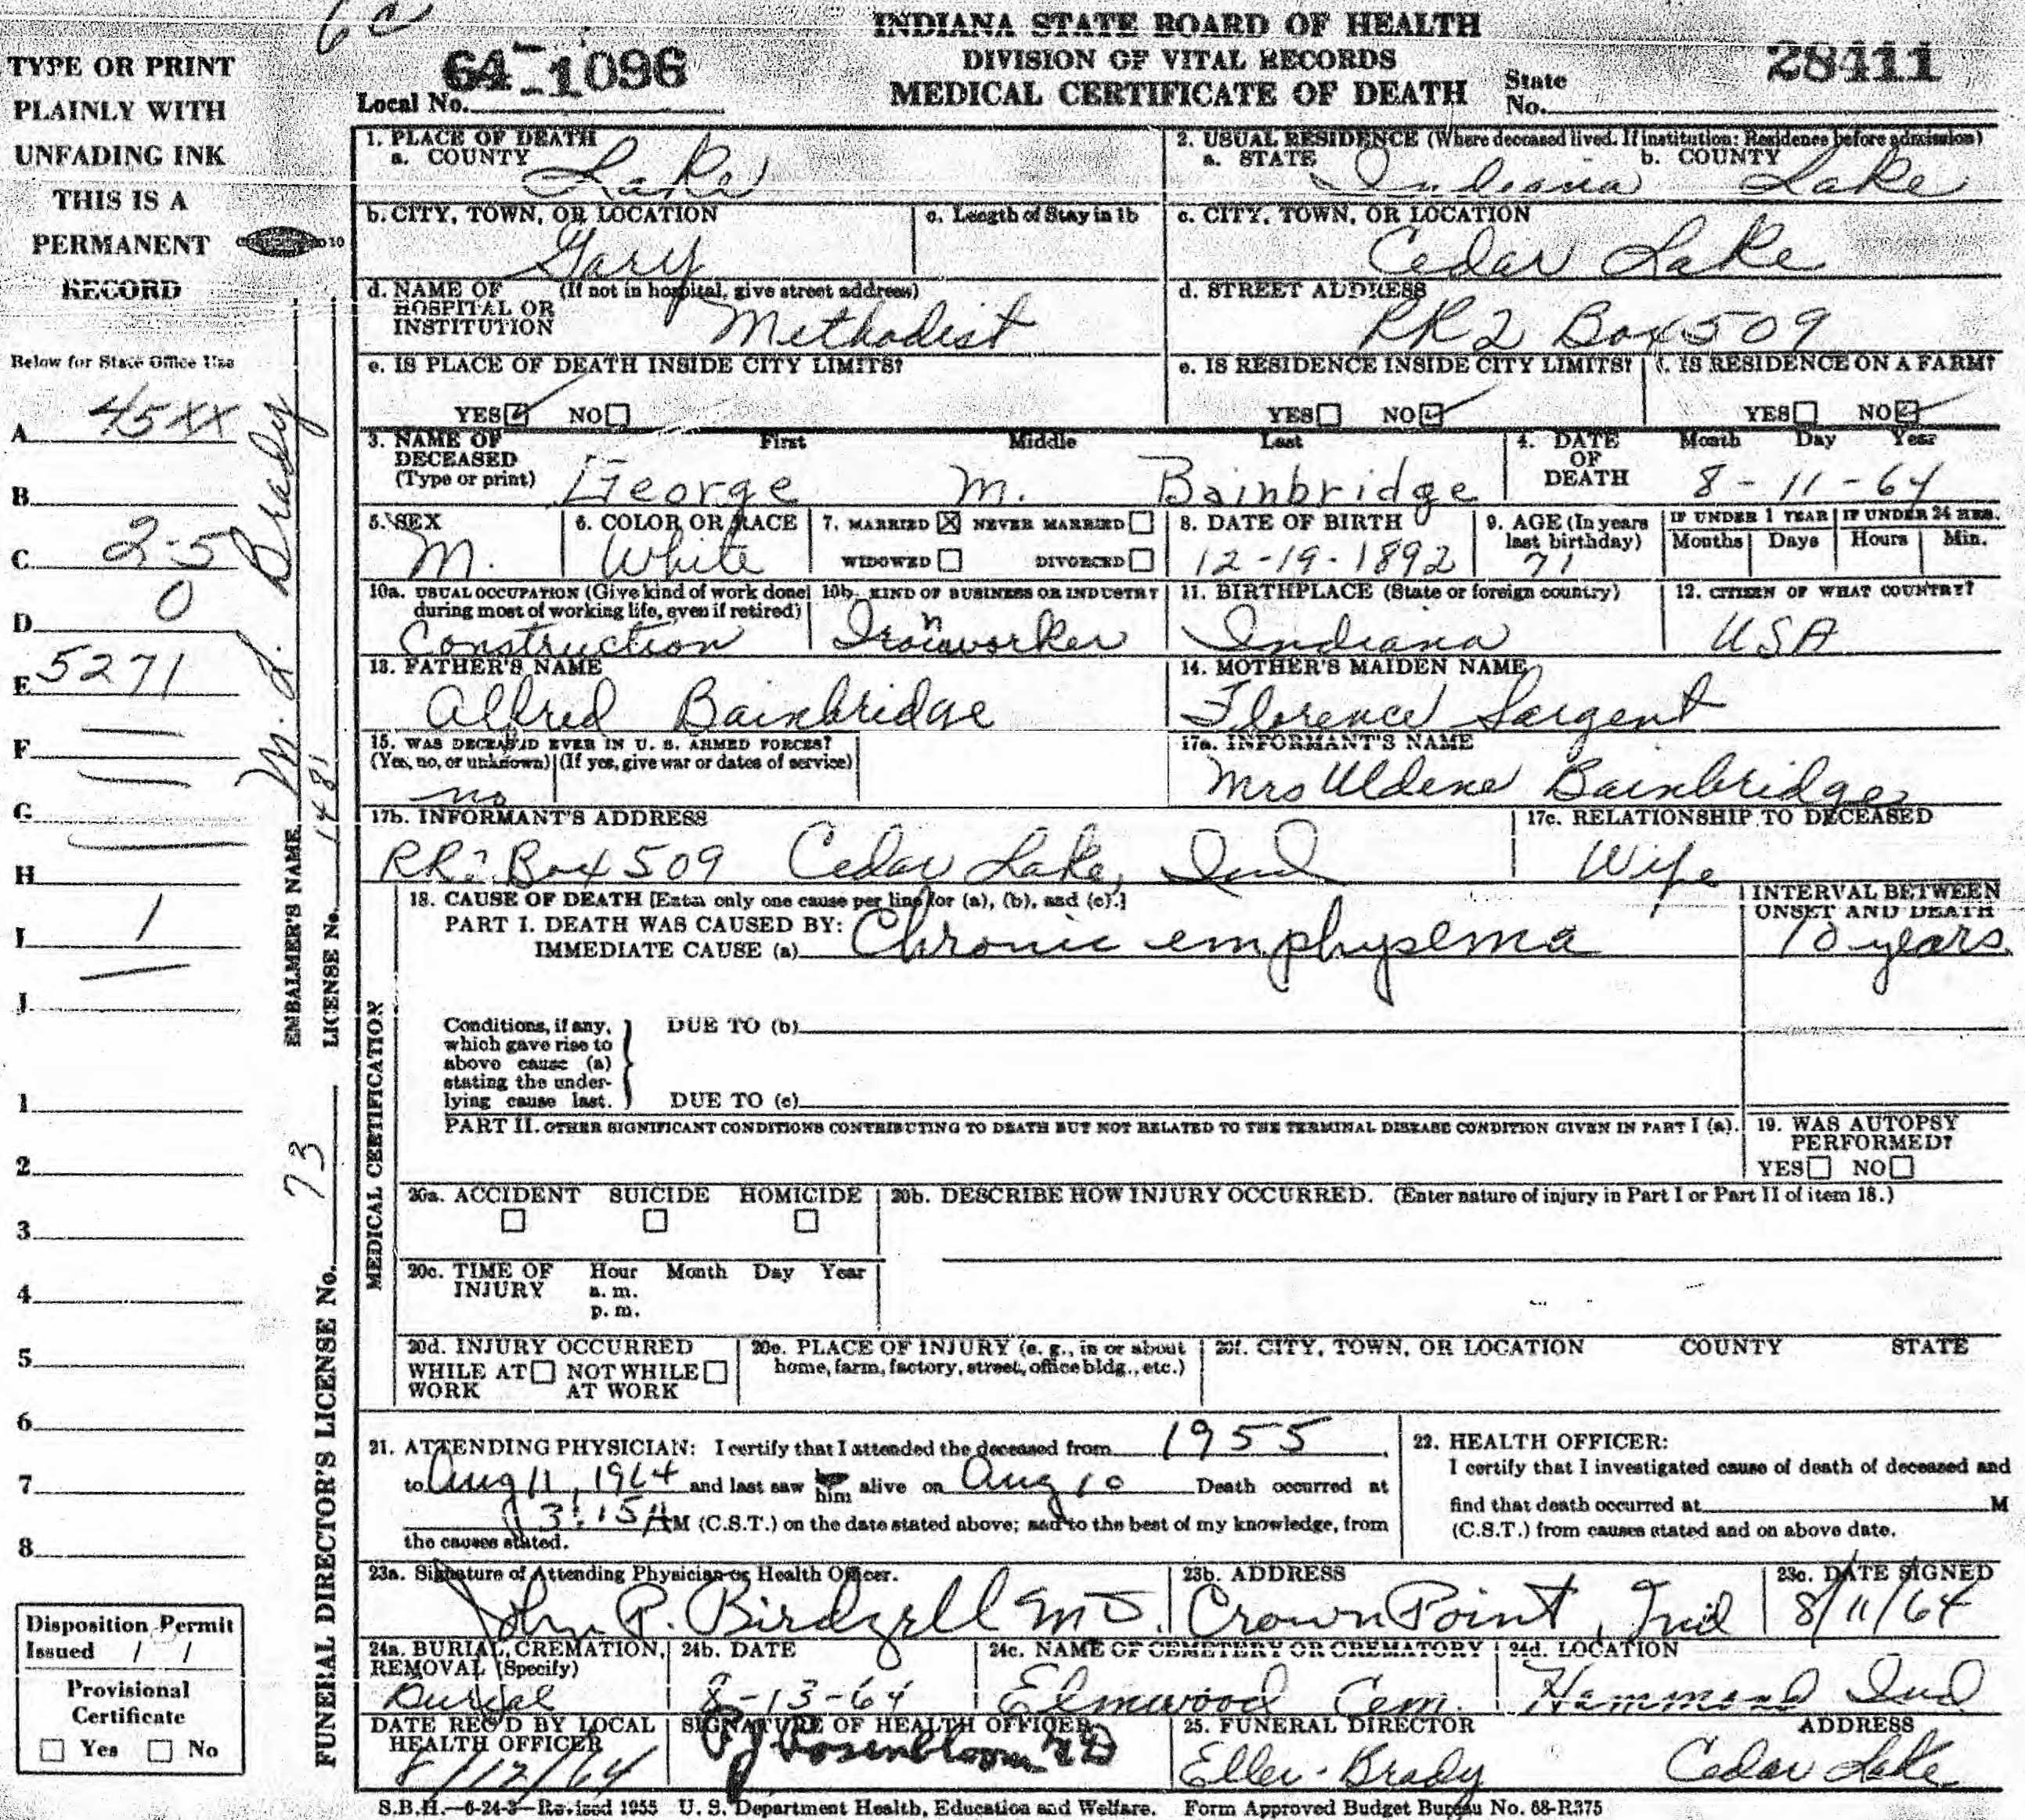 INDIANA STATE BOARD OF HEALTH
DIVISION OF VITAL RECORDS
MEDICAL CERTIFICATE OF DEATH
Local No. 64-1096
State No. 28411
TYPE OR PRINT
PLAINLY WITH
UNFADING INK
THIS IS A
PERMANENT
RECORD
10
Below for State Office Use
A 45XX
B
C 2-5
D 0
E 5271
F
G
H
I 1
J
1
2
3
4
5
6
7
8
Disposition Permit
Issued / /
Provisional
Certificate
Yes No
EMBALMER'S NAME M. L. Brady
LICENSE No. 1481
FUNERAL DIRECTOR'S LICENSE No. 73
1. PLACE OF DEATH
a. COUNTY Lake
2. USUAL RESIDENCE (Where deceased lived. If institution: Residence before admission)
a. STATE Indiana b. COUNTY Lake
b. CITY, TOWN, OR LOCATION Gary
c. Length of Stay in 1b
c. CITY, TOWN, OR LOCATION Cedar Lake
d. NAME OF (If not in hospital, give street address)
HOSPITAL OR
INSTITUTION Methodist
d. STREET ADDRESS RR2 Box 509
e. IS PLACE OF DEATH INSIDE CITY LIMITS?
YES NO
e. IS RESIDENCE INSIDE CITY LIMITS?
YES NO
f. IS RESIDENCE ON A FARM?
YES NO
3. NAME OF DECEASED (Type or print)
First Middle Last
George M. Bainbridge
4. DATE OF DEATH Month Day Year
8-11-64
5. SEX M.
6. COLOR OR RACE White
7. MARRIED NEVER MARRIED
WIDOWED DIVORCED
8. DATE OF BIRTH 12-19-1892
9. AGE (In years last birthday) 71
IF UNDER 1 YEAR Months Days
IF UNDER 24 HRS. Hours Min.
10a. USUAL OCCUPATION (Give kind of work done during most of working life, even if retired) Construction
10b. KIND OF BUSINESS OR INDUSTRY Ironworker
11. BIRTHPLACE (State or foreign country) Indiana
12. CITIZEN OF WHAT COUNTRY? USA
13. FATHER'S NAME Alfred Bainbridge
14. MOTHER'S MAIDEN NAME Florence Sargent
15. WAS DECEASED EVER IN U. S. ARMED FORCES?
(Yes, no, or unknown) (If yes, give war or dates of service)
no
17a. INFORMANT'S NAME Mrs Uldene Bainbridge
17b. INFORMANT'S ADDRESS RR2 Box 509 Cedar Lake, Ind
17c. RELATIONSHIP TO DECEASED Wife
MEDICAL CERTIFICATION
18. CAUSE OF DEATH [Enter only one cause per line for (a), (b), and (c).]
INTERVAL BETWEEN ONSET AND DEATH
PART I. DEATH WAS CAUSED BY:
IMMEDIATE CAUSE (a) Chronic emphysema 10 years
Conditions, if any,
which gave rise to
above cause (a)
stating the under-
lying cause last.
DUE TO (b)
DUE TO (c)
PART II. OTHER SIGNIFICANT CONDITIONS CONTRIBUTING TO DEATH BUT NOT RELATED TO THE TERMINAL DISEASE CONDITION GIVEN IN PART I (a).
19. WAS AUTOPSY PERFORMED?
YES NO
20a. ACCIDENT SUICIDE HOMICIDE
20b. DESCRIBE HOW INJURY OCCURRED. (Enter nature of injury in Part I or Part II of item 18.)
20c. TIME OF INJURY Hour Month Day Year
a. m.
p. m.
20d. INJURY OCCURRED
WHILE AT WORK NOT WHILE AT WORK
20e. PLACE OF INJURY (e. g., in or about home, farm, factory, street, office bldg., etc.)
20f. CITY, TOWN, OR LOCATION COUNTY STATE
21. ATTENDING PHYSICIAN: I certify that I attended the deceased from 1955
to Aug 11, 1964 and last saw him alive on Aug 10 Death occurred at
3:15 AM (C.S.T.) on the date stated above; and to the best of my knowledge, from
the causes stated.
22. HEALTH OFFICER:
I certify that I investigated cause of death of deceased and
find that death occurred at M
(C.S.T.) from causes stated and on above date.
23a. Signature of Attending Physician or Health Officer.
John P. Birdzell MD.
23b. ADDRESS Crown Point, Ind
23c. DATE SIGNED 8/11/64
24a. BURIAL, CREMATION, REMOVAL (Specify) Burial
24b. DATE 8-13-64
24c. NAME OF CEMETERY OR CREMATORY Elmwood Cem.
24d. LOCATION Hammond Ind
DATE REC'D BY LOCAL HEALTH OFFICER 8/12/64
SIGNATURE OF HEALTH OFFICER PJ Rosenbloom MD
25. FUNERAL DIRECTOR ADDRESS
Eller-Brady Cedar Lake
S.B.H.—6-24-3—Revised 1955 U. S. Department Health, Education and Welfare. Form Approved Budget Bureau No. 68-R375